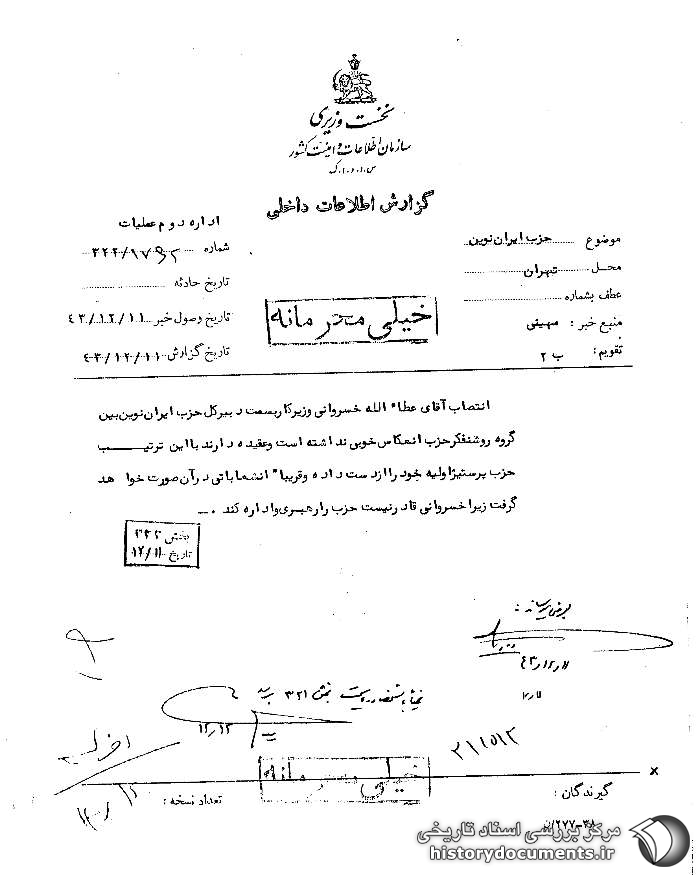 نخست وزیری
سازمان اطلاعات و امنیت کشور
س.ا.و.ا.ک
گزارش اطلاعات داخلی
اداره دوم عملیات
موضوع حزب ایران نوین
شماره
محل تهران
تاریخ حادثه
عطف بشماره
تاریخ وصول خبر ۴۳/۱۲/۱۱
منبع خبر : میهنی
تاریخ گزارش ۴۳/۱۲/۱۱
تقویم: ب ۲
خیلی محرمانه
انتصاب آقای عطاء الله خسروانی وزیر کار بسمت دبیر کل حزب ایران نوین بین
گروه روشنفکر حزب انعکاس خوبی نداشته است و عقیده دارند با این ترتیب
حزب پرستیژ اولیه خود را از دست داده و قریباً انشعاباتی در آن صورت خواهد
گرفت زیرا خسروانی قادر نیست حزب را رهبری و اداره کند .
بخش ۳۲۲
تاریخ ۱۲/۱۱
بعرض میرساند :
۴۳/۱۲/۱۱
بخش ۳۲۱
۱۲/۱۲
خیلی محرمانه
گیرندگان :
تعداد نسخه :
مرکز بررسی اسناد تاریخی
historydocuments.ir